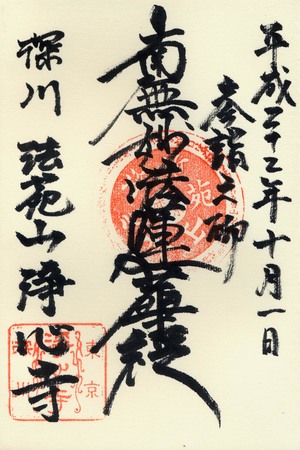 平成二十二年十月一日
参詣之砌
南無妙法蓮華経
深川 法苑山 浄心寺
東京